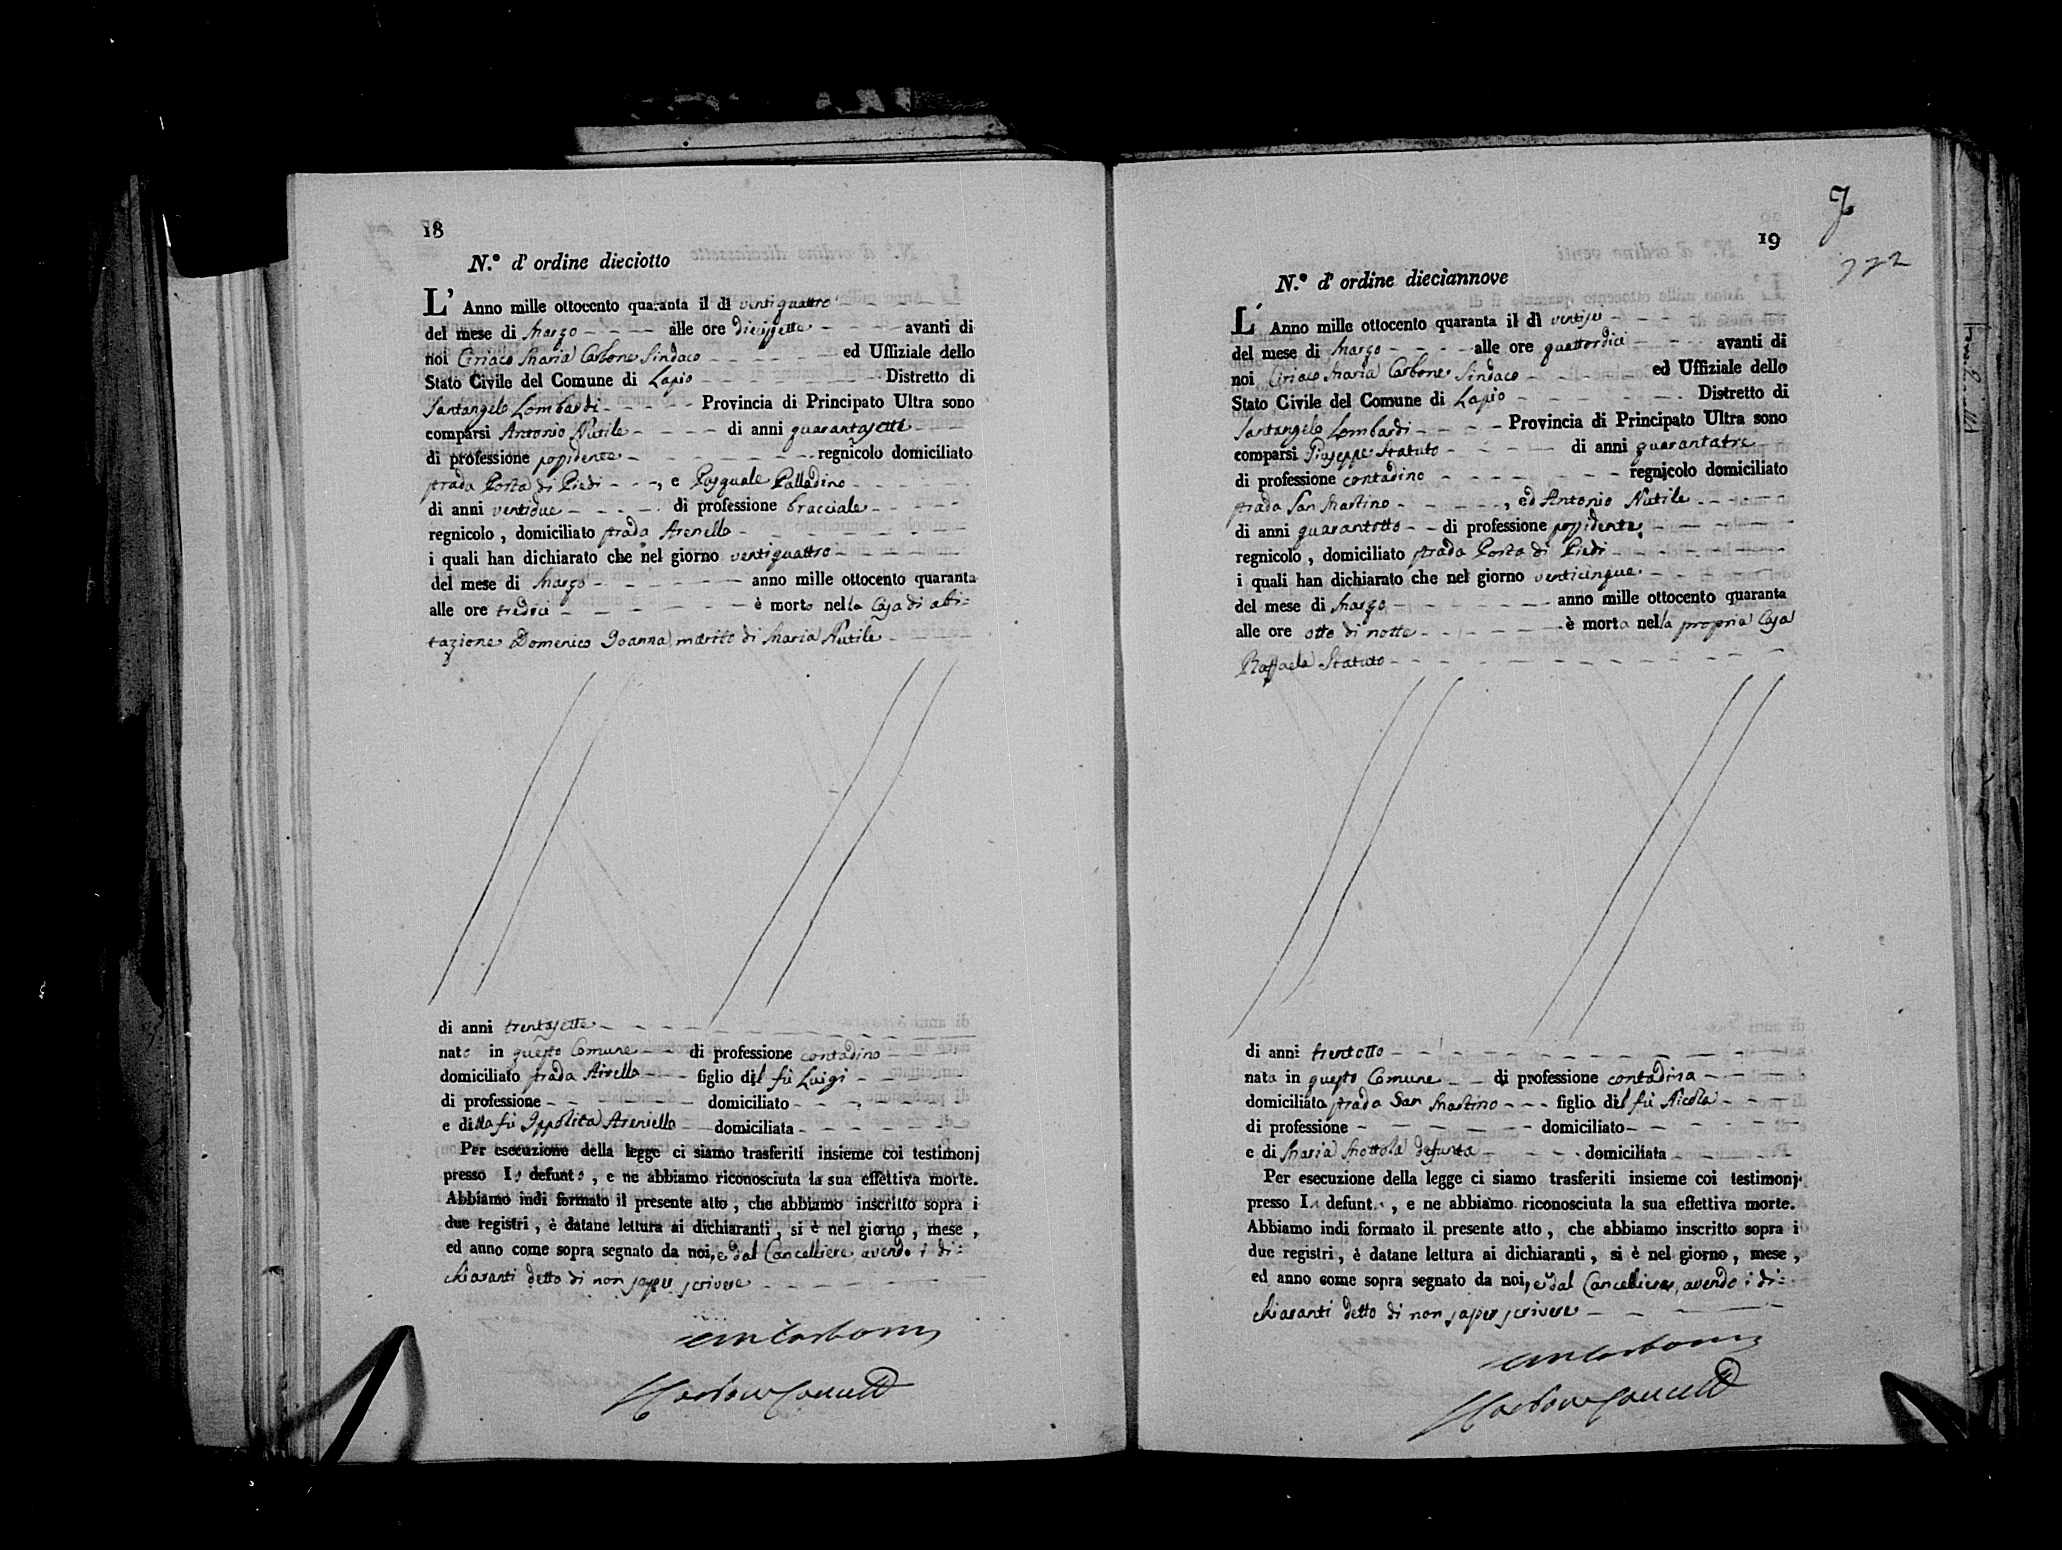 18
N.° d' ordine dieciotto
L' Anno mille ottocento quaranta il dì ventiquattro
del mese di Marzo alle ore diecissette avanti di
noi Ciriaco Maria Carbone Sindaco ed Uffiziale dello
Stato Civile del Comune di Lapio Distretto di
Santangelo Lombardi Provincia di Principato Ultra sono
comparsi Antonio Nutile di anni quarantasette
di professione possidente regnicolo domiciliato
strada Porta di Piedi, e Pasquale Palladino
di anni ventidue di professione bracciale
regnicolo, domiciliato strada Arenella
i quali han dichiarato che nel giorno ventiquattro
del mese di Marzo anno mille ottocento quaranta
alle ore tredici è morto nella Casa di abi=
tazione Domenico Joanna marito di Maria Nutile
di anni trentasette
nato in questo Comune di professione contadino
domiciliato strada figlio del fù Luigi
di professione domiciliato
e della fù Ippolita Areniello domiciliata
Per esecuzione della legge ci siamo trasferiti insieme coi testimonj
presso Lo defunto, e ne abbiamo riconosciuta la sua effettiva morte.
Abbiamo indi formato il presente atto, che abbiamo inscritto sopra i
due registri, è datane lettura ai dichiaranti, si è nel giorno, mese,
ed anno come sopra segnato da noi, e dal Cancelliere avendo i di=
chiaranti detto di non saper scrivere
19
N.° d' ordine dieciannove
L' Anno mille ottocento quaranta il dì ventisei
del mese di Marzo alle ore quattordici avanti di
noi Ciriaco Maria Carbone Sindaco ed Uffiziale dello
Stato Civile del Comune di Lapio Distretto di
Santangelo Lombardi Provincia di Principato Ultra sono
comparsi Giuseppe Statuto di anni quarantatre
di professione contadino regnicolo domiciliato
strada San Martino, ed Antonio Nutile
di anni quarantotto di professione possidente
regnicolo, domiciliato strada Porta di Piedi
i quali han dichiarato che nel giorno venticinque
del mese di Marzo anno mille ottocento quaranta
alle ore otto di notte è morta nella propria Casa
Raffaela Statuto
di anni trentotto
nata in questo Comune di professione contadina
domiciliata strada San Martino figlia del fù Nicola
di professione domiciliato
e di Maria Mottola defunta domiciliata
Per esecuzione della legge ci siamo trasferiti insieme coi testimonj
presso La defunta, e ne abbiamo riconosciuta la sua effettiva morte.
Abbiamo indi formato il presente atto, che abbiamo inscritto sopra i
due registri, è datane lettura ai dichiaranti, si è nel giorno, mese,
ed anno come sopra segnato da noi, e dal Cancelliere, avendo i di=
chiaranti detto di non saper scrivere